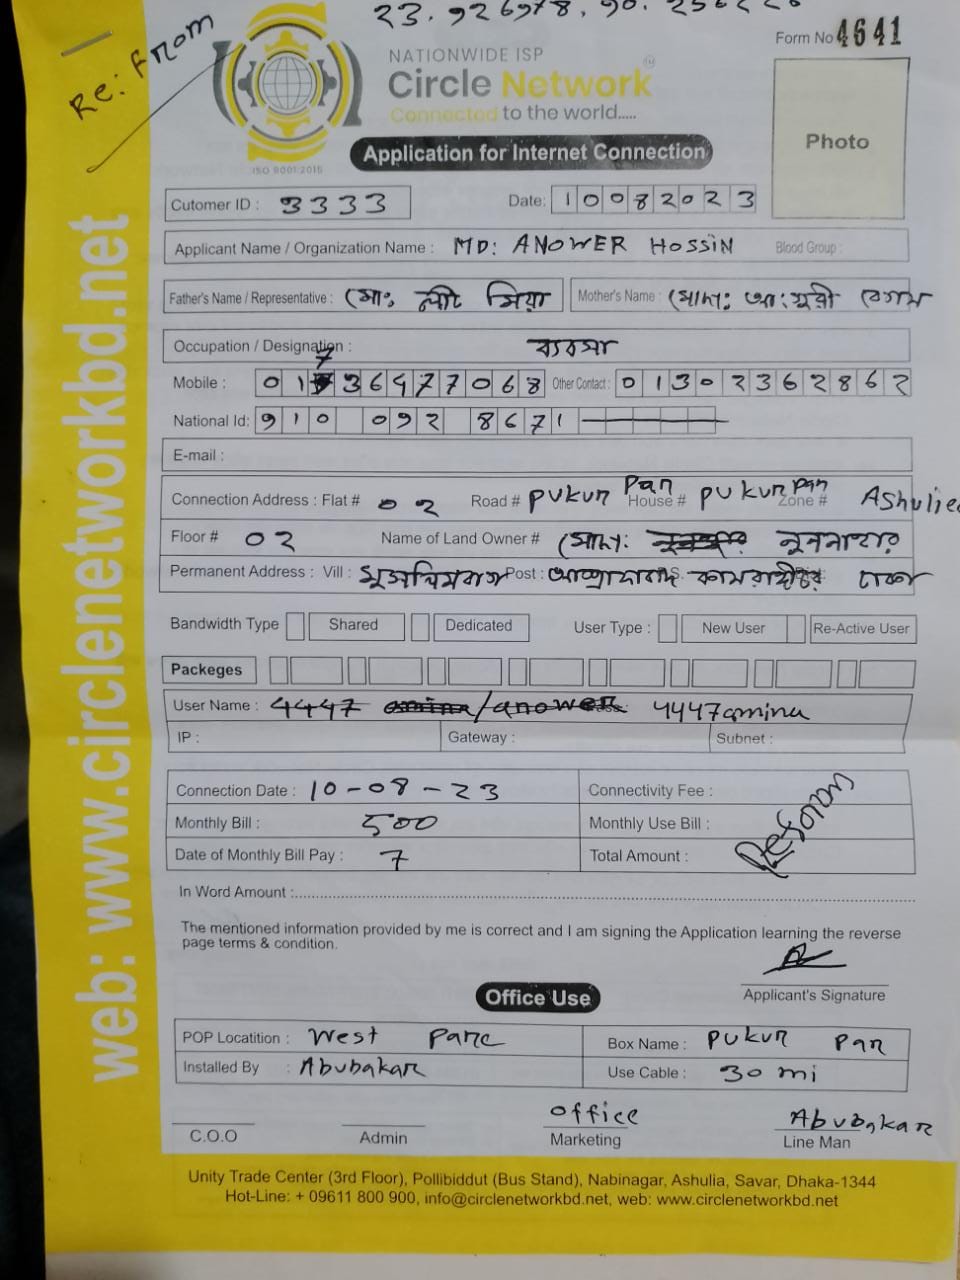 23.926978, 90.
Re: From
Form No 4641
NATIONWIDE ISP
Circle Network
Connected to the world.....
ISO 9001:2015
Photo
Application for Internet Connection
Cutomer ID : 3333 Date: 10082023
Applicant Name / Organization Name : MD: ANOWER HOSSiN Blood Group :
Father's Name / Representative : মো: লাট মিয়া Mother's Name : মোসা: আ:নুরী বেগম
Occupation / Designation : ব্যবসা
Mobile : 01736477068 Other Contact : 01302362862
National Id: 910 092 8671
E-mail :
Connection Address : Flat # 02 Road # PUKUR Par House # PUKUR Par Zone # AShulie
Floor # 02 Name of Land Owner # মোসা: নুরনাহার
Permanent Address : Vill : Post : ঢাকা
Bandwidth Type Shared Dedicated User Type : New User Re-Active User
Packeges
User Name : 4447 amina/anower 4447amina
IP : Gateway : Subnet :
Connection Date : 10-08-23 Connectivity Fee :
Monthly Bill : 500 Monthly Use Bill :
Date of Monthly Bill Pay : 7 Total Amount :
Reform
In Word Amount :
The mentioned information provided by me is correct and I am signing the Application learning the reverse
page terms & condition.
Applicant's Signature
Office Use
POP Locatition : West Parc Box Name : PUKUR Par
Installed By : Abubakar Use Cable : 30 mi
C.O.O Admin office Marketing Abubakar Line Man
Unity Trade Center (3rd Floor), Pollibiddut (Bus Stand), Nabinagar, Ashulia, Savar, Dhaka-1344
Hot-Line: + 09611 800 900, info@circlenetworkbd.net, web: www.circlenetworkbd.net
web: www.circlenetworkbd.net